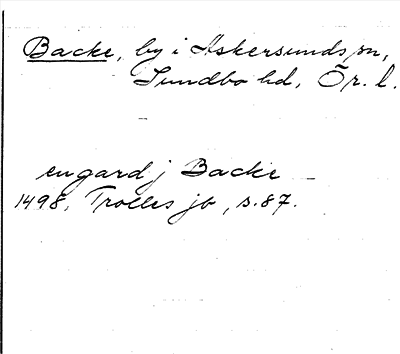 Backe, by i Askersunds sn,
Sundbo hd, Ör. l.
en gard j Backe
1498, Trolles jb, s. 87.